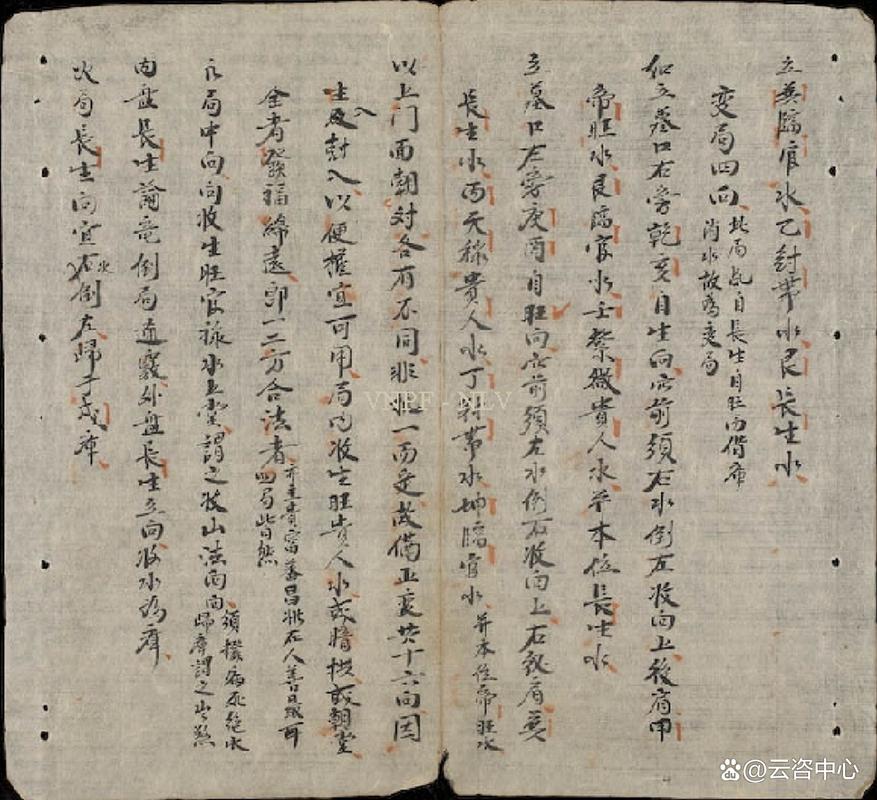 立巽臨官水乙封帶水艮長生水
変局四向此局乱自長生自旺向借库
消水故為変局
如立墓口右旁乾亥自生向宜前須右水倒左收向上後肩甲
帝旺水艮臨官水壬紫微貴人水并本位長生水
立墓口左旁庚酉自旺向宜前須左水倒右收向上右肩巽
長生水丙天祿貴人水丁封帶水坤臨官水并本位帝旺水
以上門面朝対各有不同非粗一而定茂備正变共十六向因
生及封入以便擇宜可用局内收生旺貴人水或暗拱或朝堂
全者發福綿遠即一二方合法者亦主貴富蕃昌推在人善目眼可
四局皆然
衣局中向向收生旺官祿水上堂謂之收山法向向須撥病死絶水
歸庫謂之出煞
内盤長生論竜倒局通竅外盤長生立向收水歸庫
火局長生向宜右水倒左歸辛戌庫
VNPF - NLV
@云咨中心